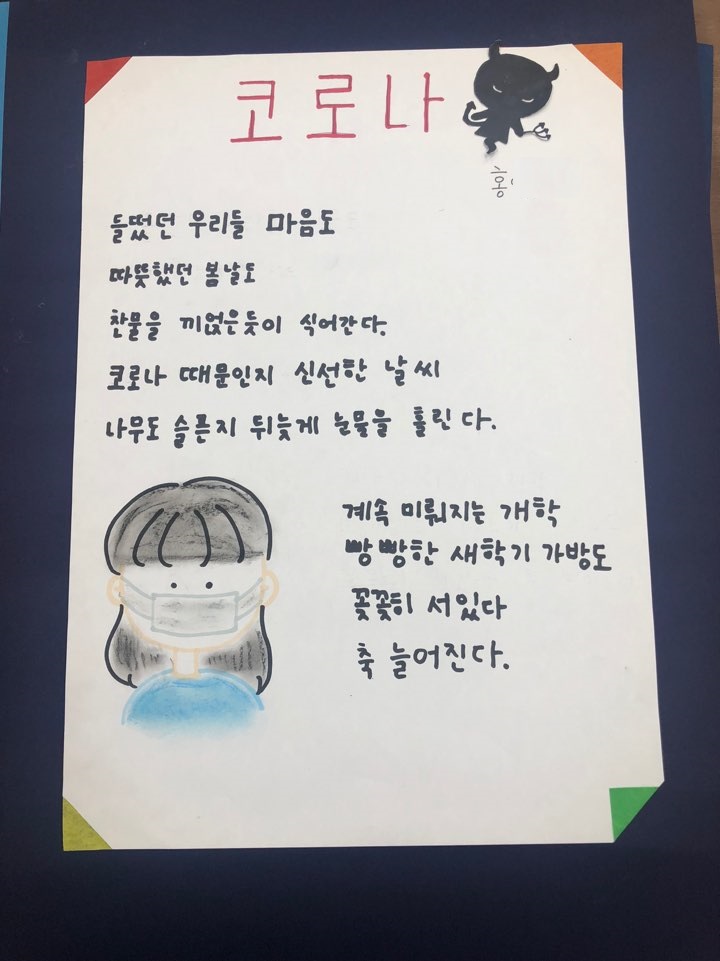 코로나
홍
들떴던 우리들 마음도
따뜻했던 봄날도
찬물을 끼얹은듯이 식어간다.
코로나 때문인지 신선한 날씨
나무도 슬픈지 뒤늦게 눈물을 흘린다.
계속 미뤄지는 개학
빵빵한 새학기 가방도
꽃꽃히 서있다
축 늘어진다.